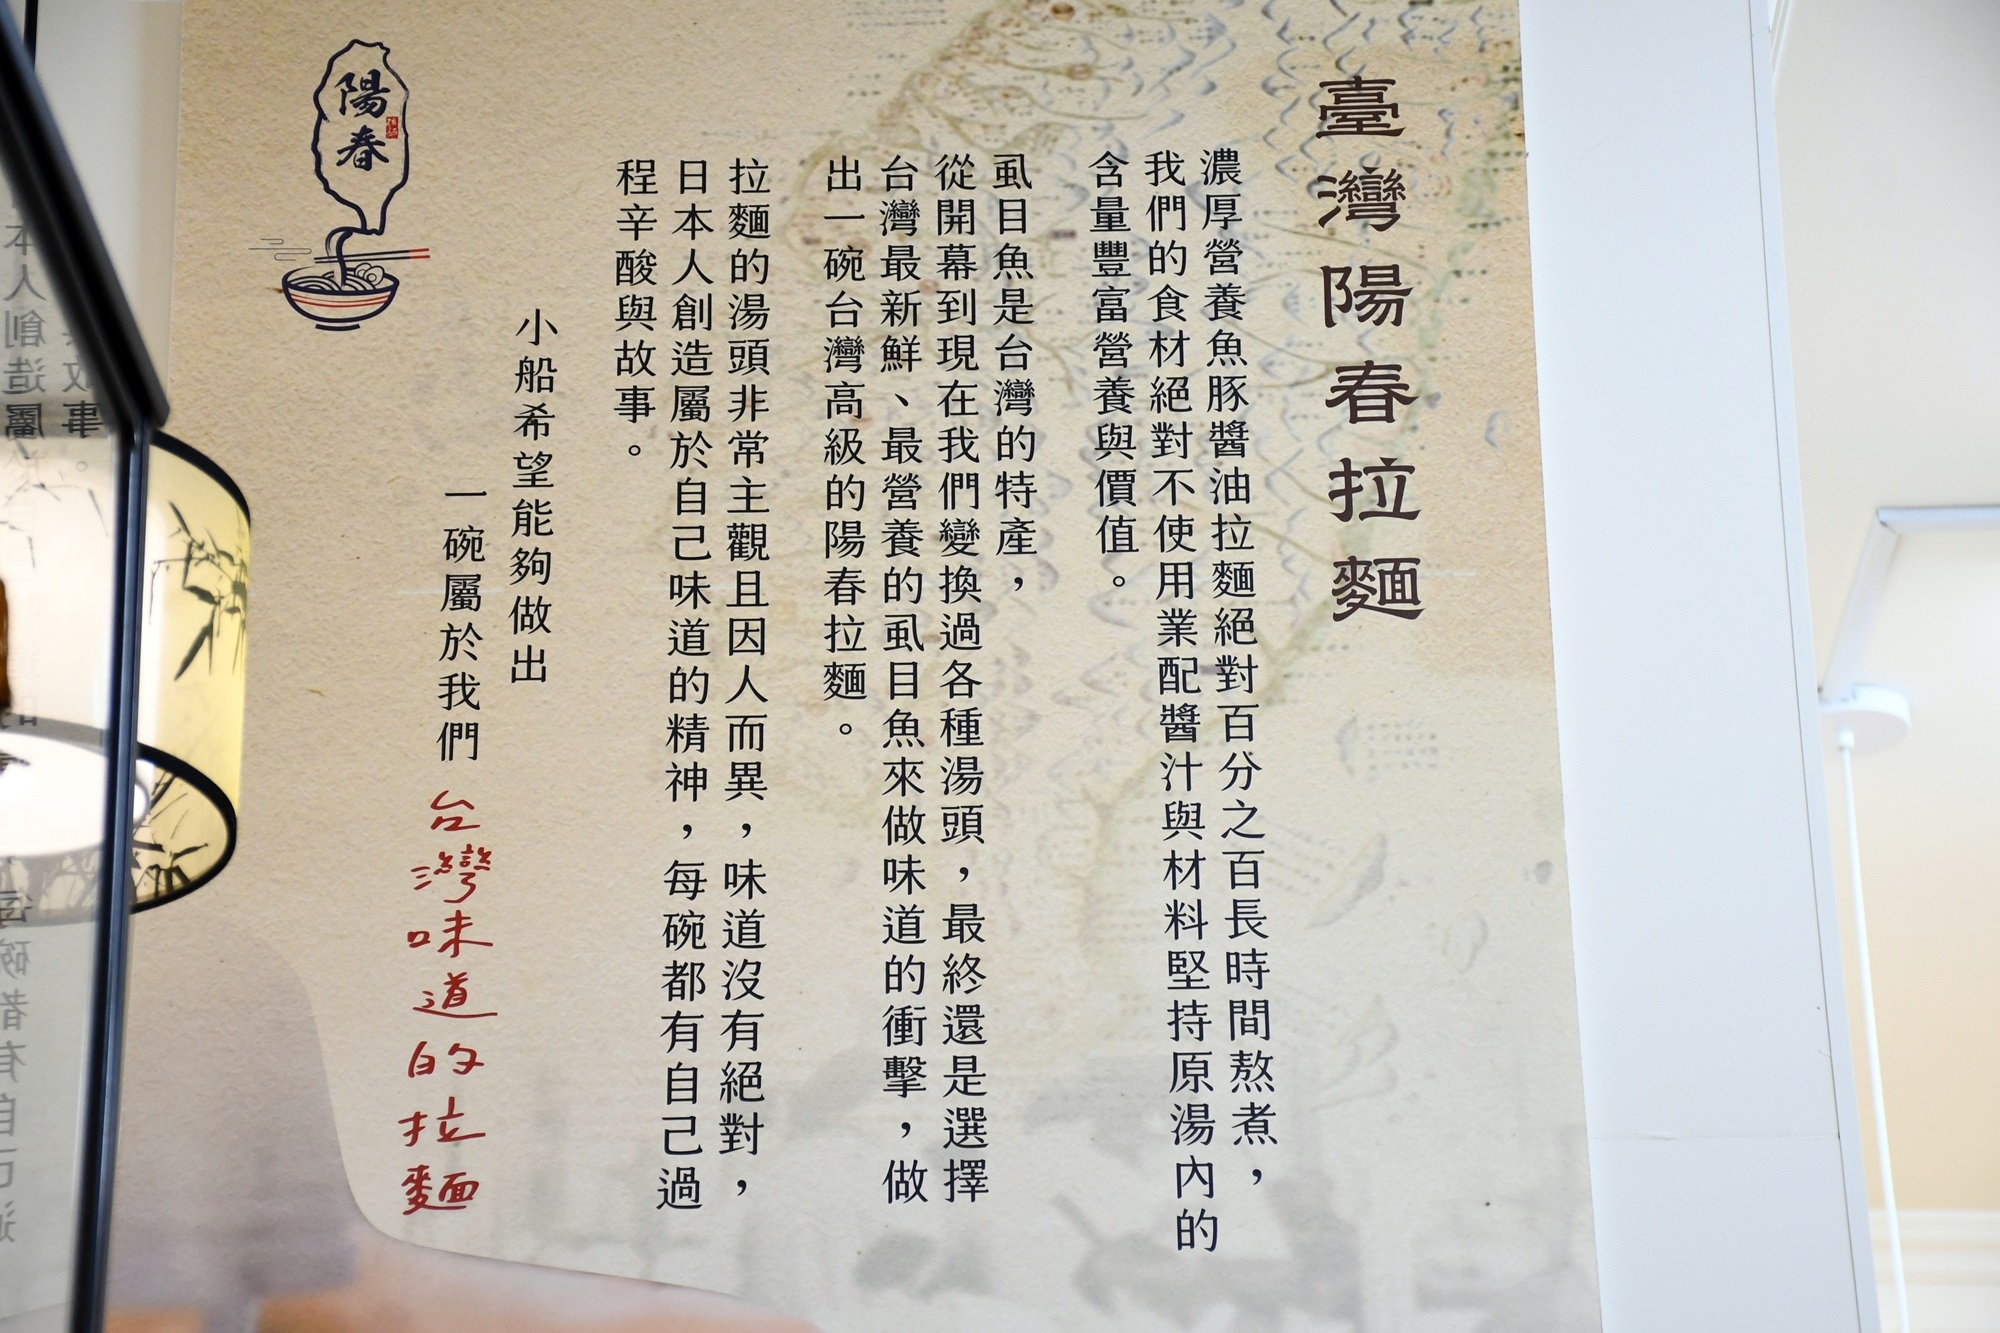 臺灣陽春拉麵
濃厚營養魚豚醬油拉麵絕對百分之百長時間熬煮，
我們的食材絕對不使用業配醬汁與材料堅持原湯內的
含量豐富營養與價值。
虱目魚是台灣的特產，
從開幕到現在我們變換過各種湯頭，最終還是選擇
台灣最新鮮、最營養的虱目魚來做味道的衝擊，做
出一碗台灣高級的陽春拉麵。
拉麵的湯頭非常主觀且因人而異，味道沒有絕對，
日本人創造屬於自己味道的精神，每碗都有自己過
程辛酸與故事。
小船希望能夠做出
一碗屬於我們台灣味道的拉麵
陽春